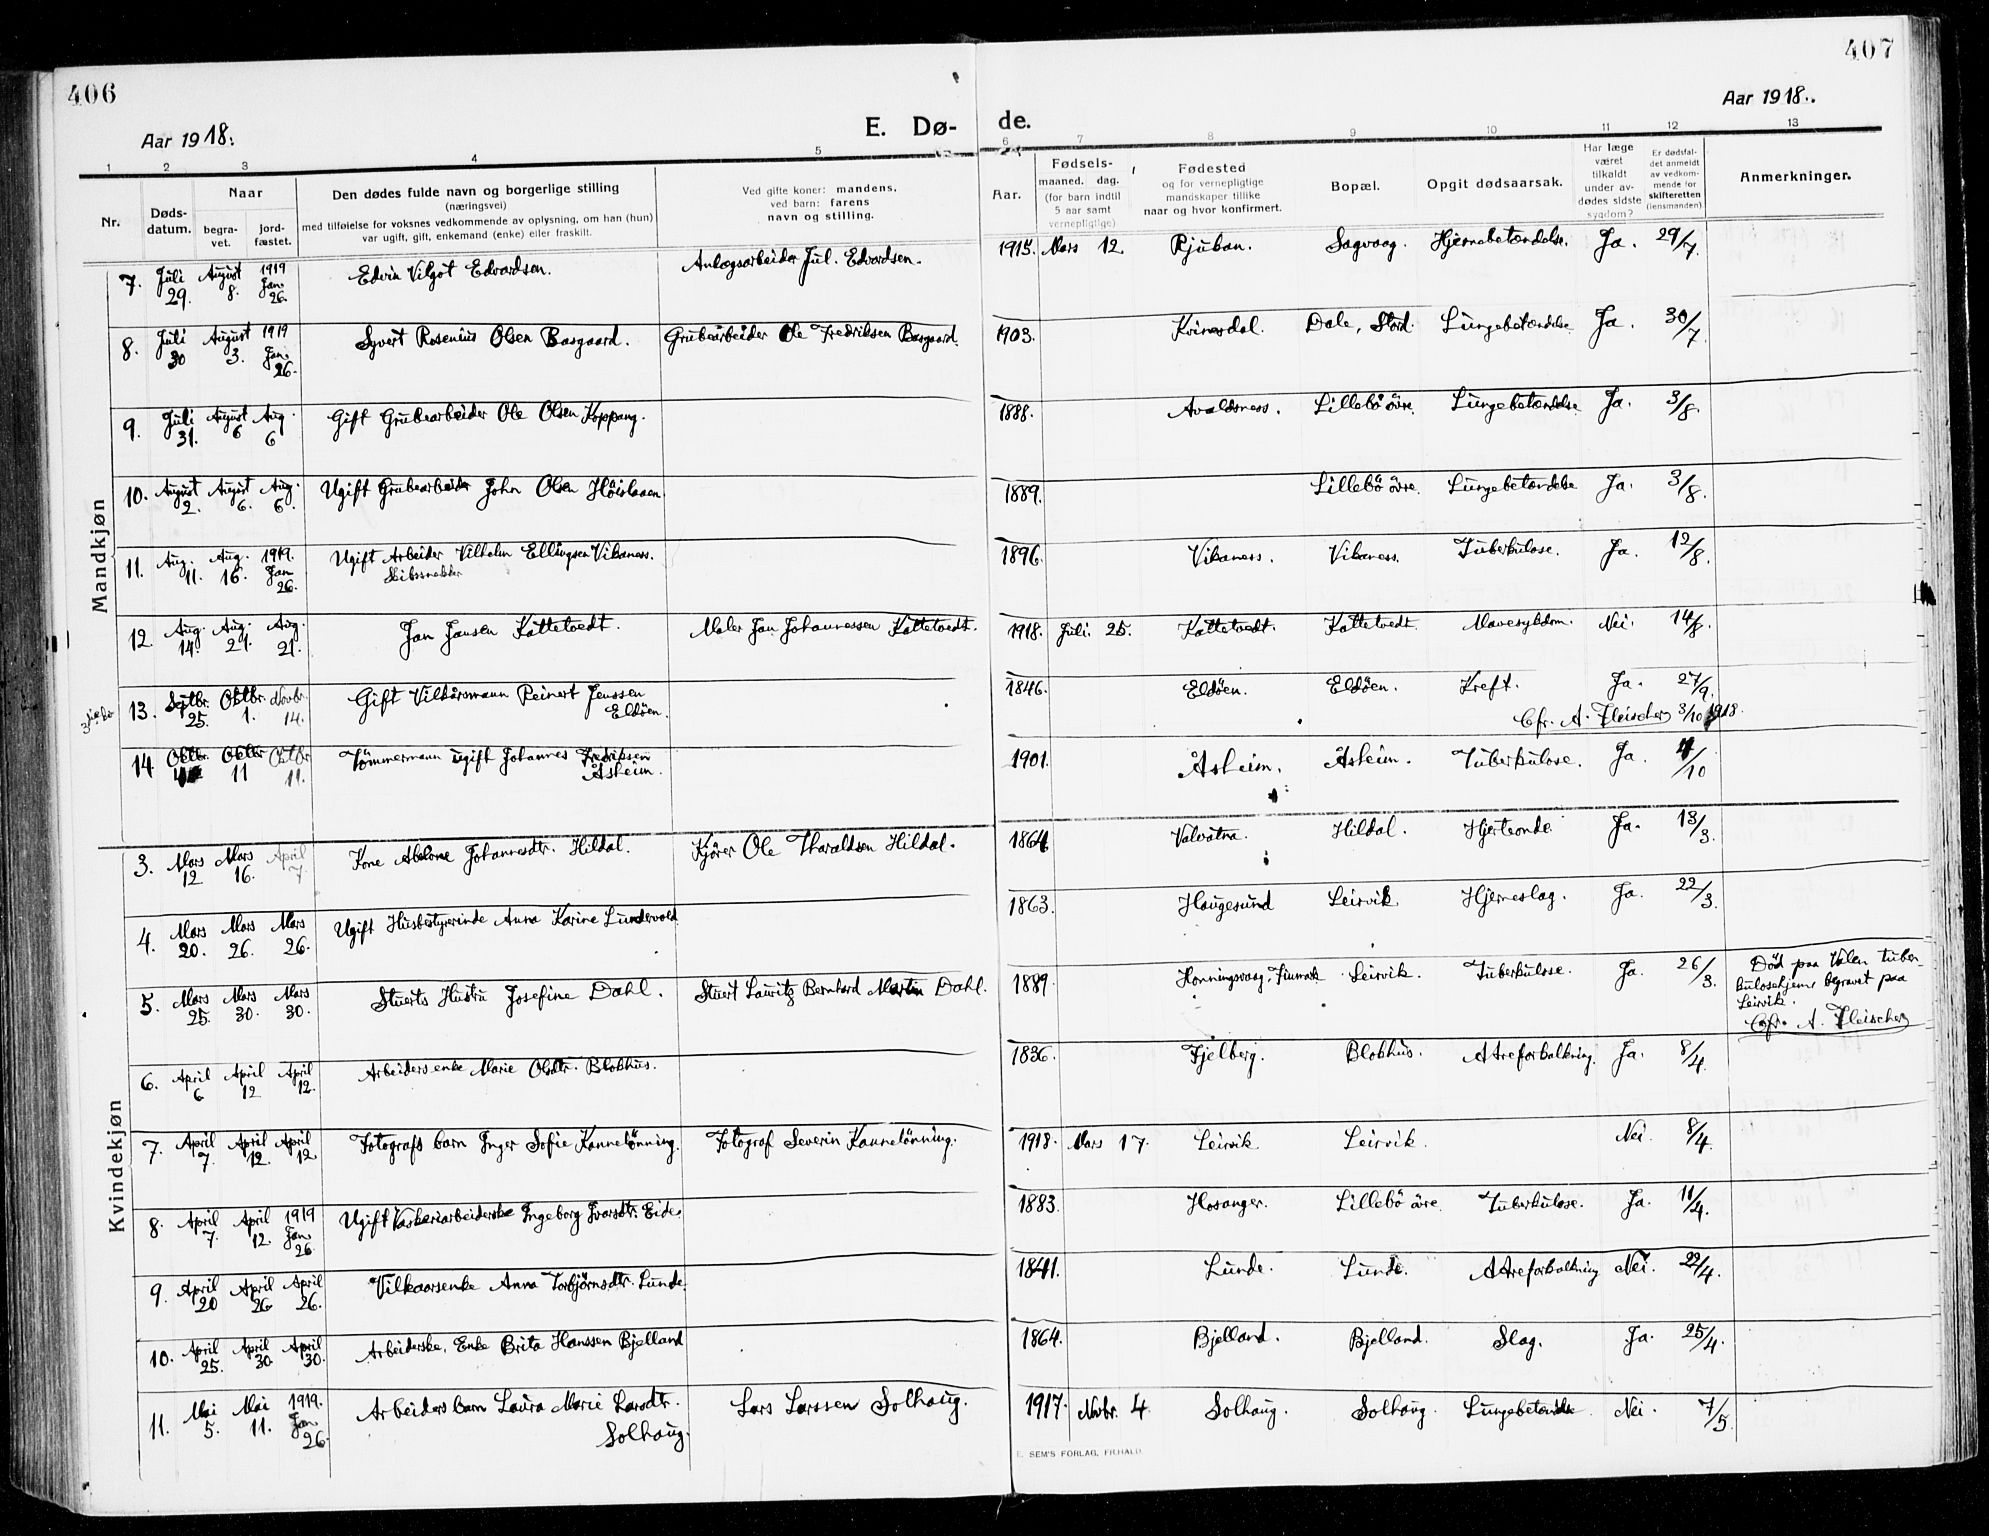 406
407
Aar 1918.
E. Dø-
de.
Aar 1918.
1 2 3 4 5 6 7 8 9 10 11 12 13
Nr.
Døds-
datum.
Naar
begra-
vet.
jord-
fæstet.
Den dødes fulde navn og borgerlige stilling
(næringsvei)
med tilføielse for voksnes vedkommende av oplysning, om han (hun)
var ugift, gift, enkemand (enke) eller fraskilt.
Ved gifte koner: mandens,
ved barn: farens
navn og stilling.
Aar.
Fødsels-
maaned. dag.
(for barn indtil
5 aar samt
vernepligtige)
Fødested
og for vernepligtige
mandskaper tillike
naar og hvor konfirmert.
Bopæl.
Opgit dødsaarsak.
Har læge
været
tilkaldt
under av-
dødes sidste
sygdom?
Er dødsfal-
det anmeldt
av vedkom-
mende for
skifteretten
(lensmanden)
Anmerkninger.
Mandkjøn
7. Juli 29. August 8. 1919 Jan. 26. Edvin Vilgot Edvardsen. Anlægsarbeider Jul. Edvardsen. 1915. Mars 12. Rjukan. Sagvaag. Hjernebetændelse. Ja. 29/7.
8. Juli 30 August 3. 1919 Jan. 26. Syvert Rosenius Olsen Baasgaard. Grubearbeider Ole Fredriksen Baasgaard. 1903. Kvinesdal. Dale, Stord. Lungebetændelse Ja. 30/7.
9. Juli 31. August 6 Aug. 6 Gift Grubearbeider Ole Olsen Koppang. 1888. Avaldsness. Lillebö övre. Lungebetændelse Ja. 3/8.
10. August 2. August 6. Aug. 6. Ugift Grubearbeider John Olsen 1889. Lillebö övre. Lungebetændelse Ja. 3/8.
11. Aug. 11. Aug. 16. 1919. Jan 26. Ugift Arbeider Vilhelm Ellingsen Vikaness.
Skibssnekker
1896. Vikaness. Vikaness. Tuberkulose. Ja. 12/8.
12. Aug. 14. Aug. 21. Aug. 21. Jan Jansen Kattetvedt. Maler Jan Johannessen Kattetvedt. 1918. Juli. 25. Kattetvedt. Kattetvedt. Mavesykdom. Nei. 14/8.
13. Septbr. 25. Oktbr. 1. Novbr. 14. Gift Vilkårsmann Reinert Jenssen
Eldöen.
1846. Eldöen. Eldöen. Kreft. Ja. 27/9.
Cfr. A. Fleischer 3/10 1918.
14 Oktbr. Oktbr 11 Oktbr 11. Tömmermann ugift Johannes Fredriksen
Åsheim.
1901. Åsheim. Åsheim. Tuberkulose. Ja. 4/10
Kvindekjøn
3. Mars 12 Mars 16. April 7. Kone Abelone Johannesdtr. Hildal. Kjører Ole Tharaldsen Hildal. 1864 Valvatna. Hildal. Hjerteonde Ja. 13/3.
4. Mars 20. Mars 26. Mars 26. Ugift Husbestyrerinde Anna Karine Lundevold 1863. Haugesund Leirvik Hjerneslag. Ja. 22/3.
5. Mars 25. Mars 30. Mars 30. Stuerts Hustru Josefine Dahl. Stuert Lauritz Bernhard Martin Dahl. 1889. Honningsvaag, Finmark Leirvik. Tuberkulose. Ja. 26/3. Død paa Valen tuber-
kulosehjem, begravet paa
Leirvik.
Cfr. A. Fleischer
6. April 6 April 12 April 12. Arbeiders enke Marie Olsdtr. Blokhus. 1836. Fjelberg. Blokhus. Atreforkalkning. Ja. 8/4.
7. April 7. April 12. April 12 Fotografs barn Inger Sofie Kannelönning. Fotograf Severin Kannelönning. 1918. Mars 17. Leirvik Leirvik. Nei. 8/4.
8. April 7. April 12. 1919 Jan. 26. Ugift Vaskeriarbeiderske Ingeborg Ivarsdtr. Eide. 1883. Hosanger. Lillebö övre. Tuberkulose. Ja. 11/4.
9. April 20 April 26 April 26. Vilkaarsenke Anna Torbjörnsdtr. Lunde. 1841. Lunde. Lunde. Atreforkalkning Nei. 22/4.
10. April 25. April 30. April 30. Arbeiderske, Enke Brita Hanssen Bjelland 1864. Bjelland. Bjelland. Slag. Ja. 25/4.
11. Mai 5. Mai 11. 1919. Jan. 26. Arbeiders barn Laura Marie Larsdtr.
Solhaug.
Lars Larssen Solhaug. 1917. Novbr. 4 Solhaug. Solhaug. Lungebetændelse. Nei. 7/5.
E. SEM'S FORLAG, FR.HALD.